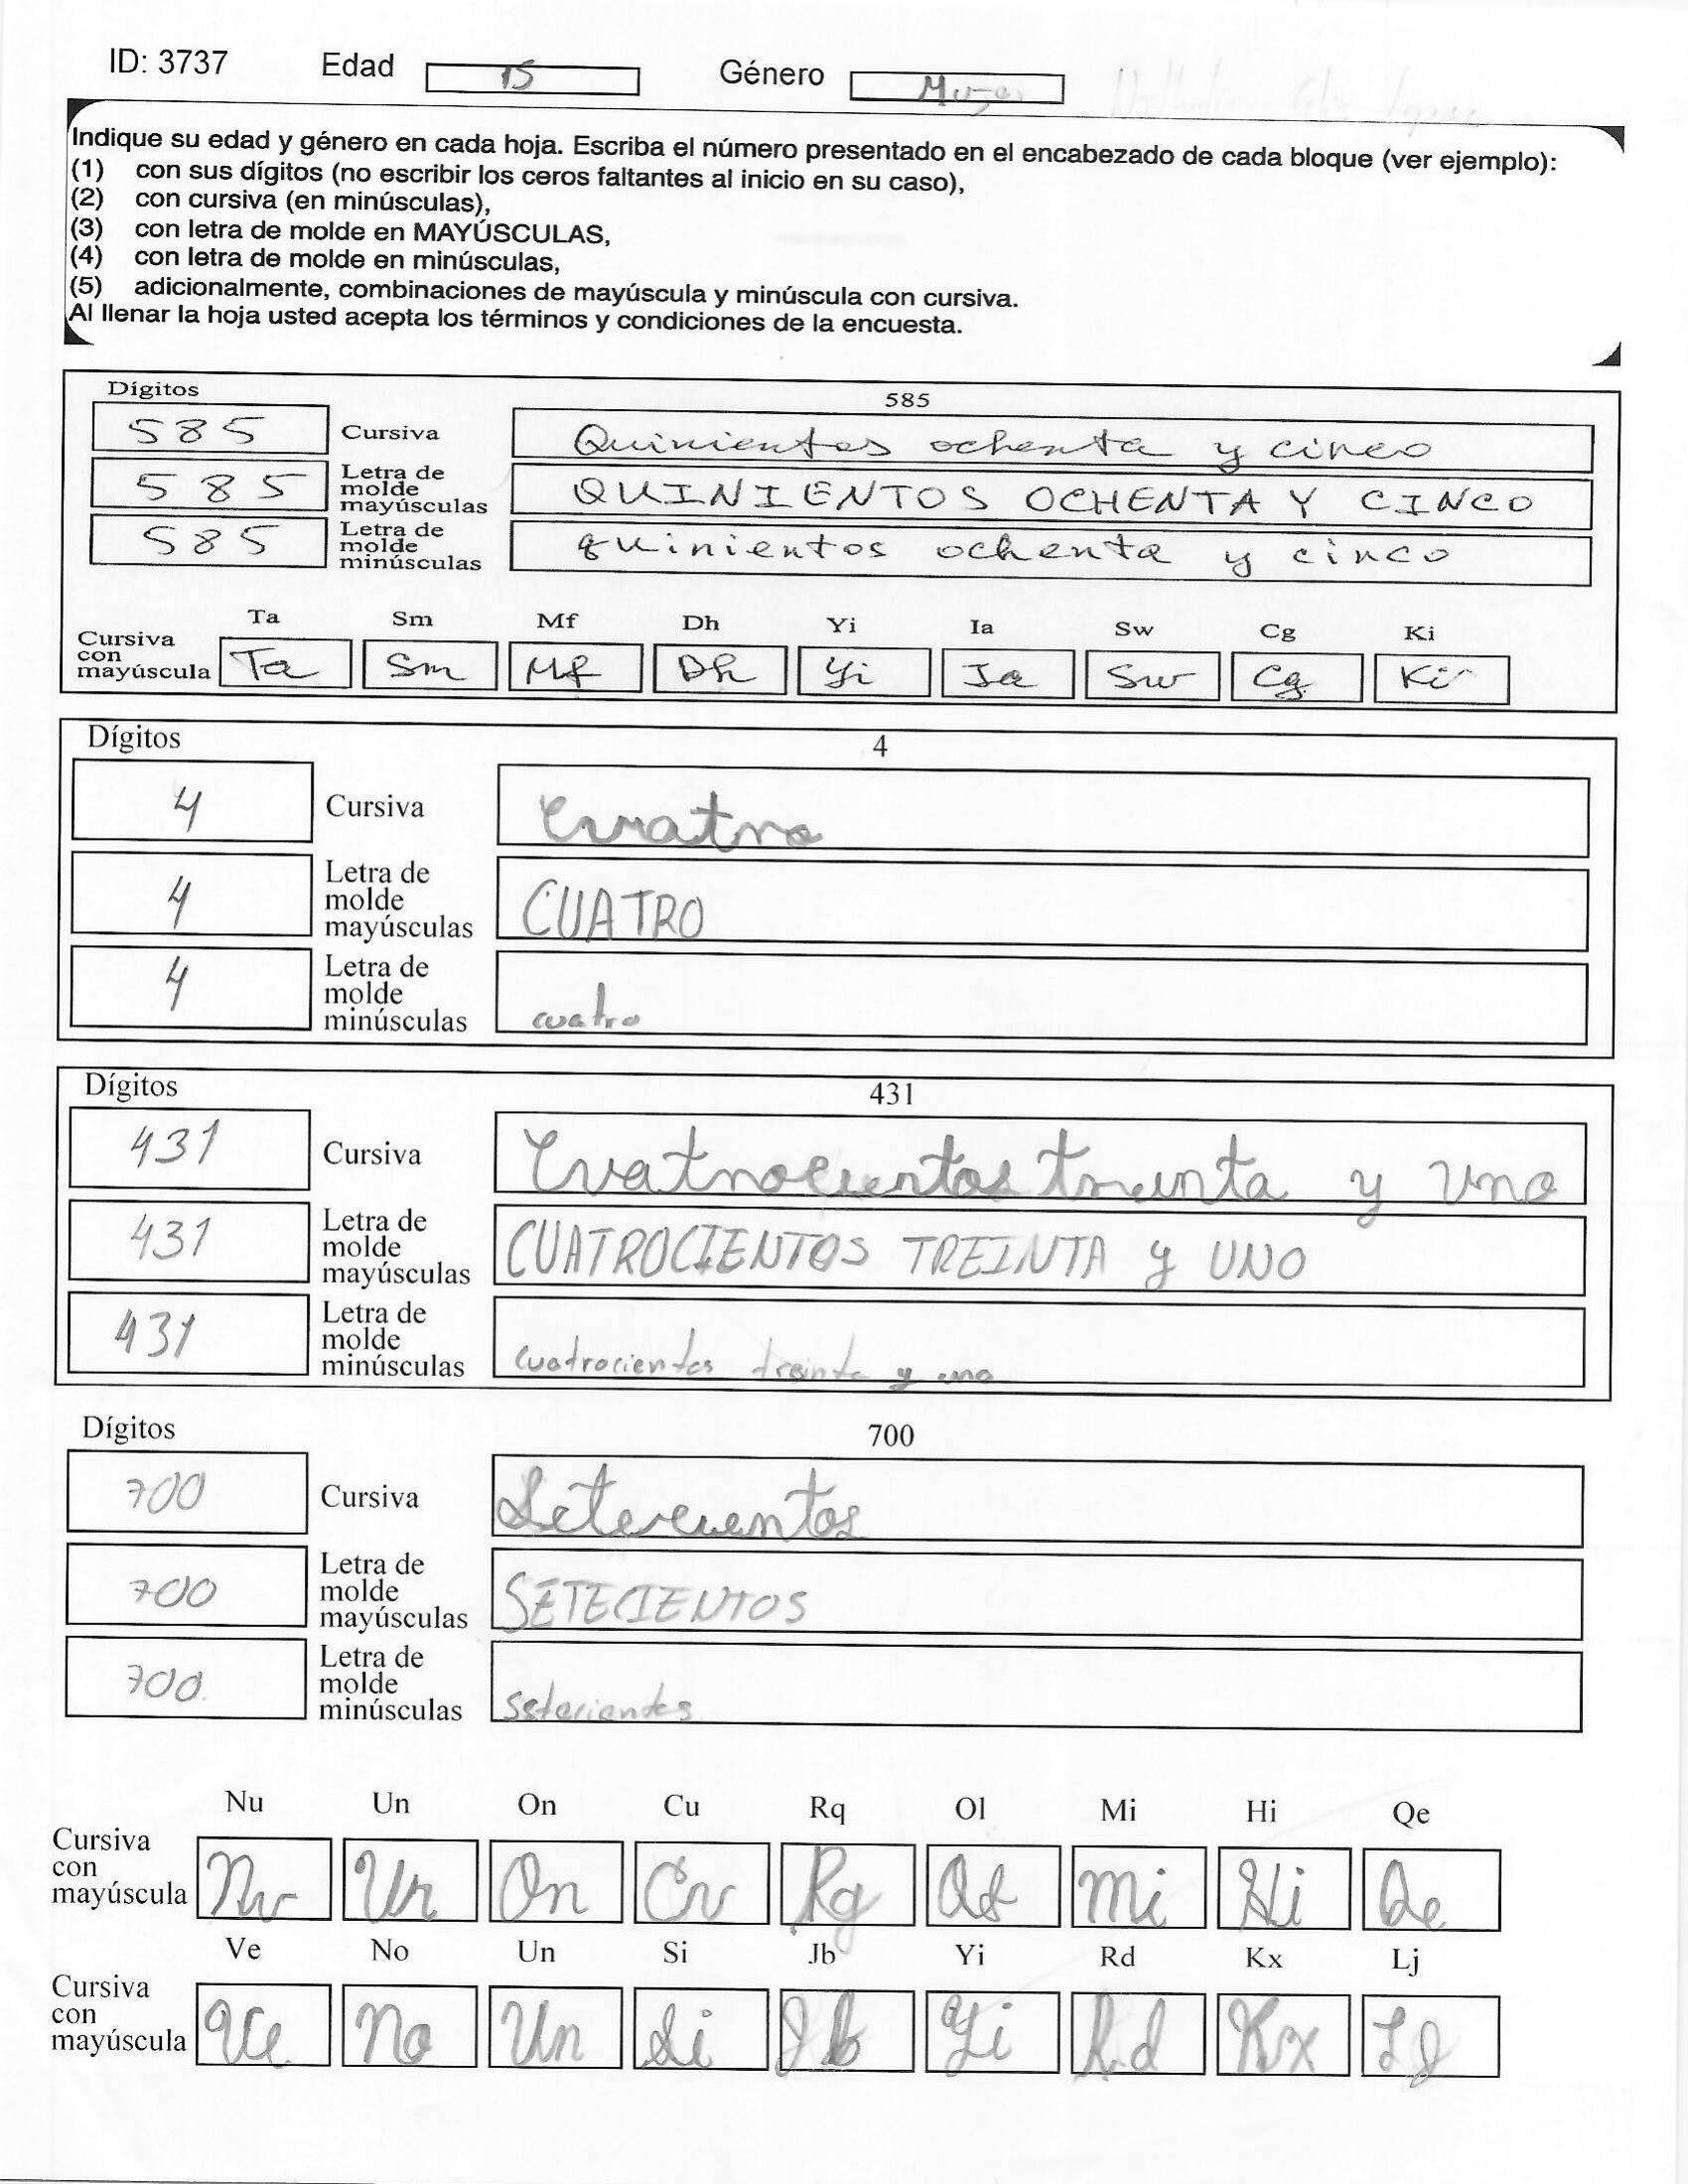 ID: 3737 Edad 15 Género Mujer
Indique su edad y género en cada hoja. Escriba el número presentado en el encabezado de cada bloque (ver ejemplo):
(1) con sus dígitos (no escribir los ceros faltantes al inicio en su caso),
(2) con cursiva (en minúsculas),
(3) con letra de molde en MAYÚSCULAS,
(4) con letra de molde en minúsculas,
(5) adicionalmente, combinaciones de mayúscula y minúscula con cursiva.
Al llenar la hoja usted acepta los términos y condiciones de la encuesta.
Dígitos 585
585 Cursiva Quinientos ochenta y cinco
585 Letra de molde mayúsculas QUINIENTOS OCHENTA Y CINCO
585 Letra de molde minúsculas quinientos ochenta y cinco
Ta Sm Mf Dh Yi Ia Sw Cg Ki
Cursiva con mayúscula Ta Sm Mf Dh Yi Ia Sw Cg Ki
Dígitos 4
4 Cursiva Cuatro
4 Letra de molde mayúsculas CUATRO
4 Letra de molde minúsculas cuatro
Dígitos 431
431 Cursiva Cuatrocientos treinta y uno
431 Letra de molde mayúsculas CUATROCIENTOS TREINTA y UNO
431 Letra de molde minúsculas cuatrocientos treinta y uno
Dígitos 700
700 Cursiva Setecientos
700 Letra de molde mayúsculas SETECIENTOS
700 Letra de molde minúsculas setecientos
Nu Un On Cu Rq Ol Mi Hi Qe
Cursiva con mayúscula Nu Un On Cu Rq Ol Mi Hi Qe
Ve No Un Si Jb Yi Rd Kx Lj
Cursiva con mayúscula Ve No Un Si Jb Yi Rd Kx Lj